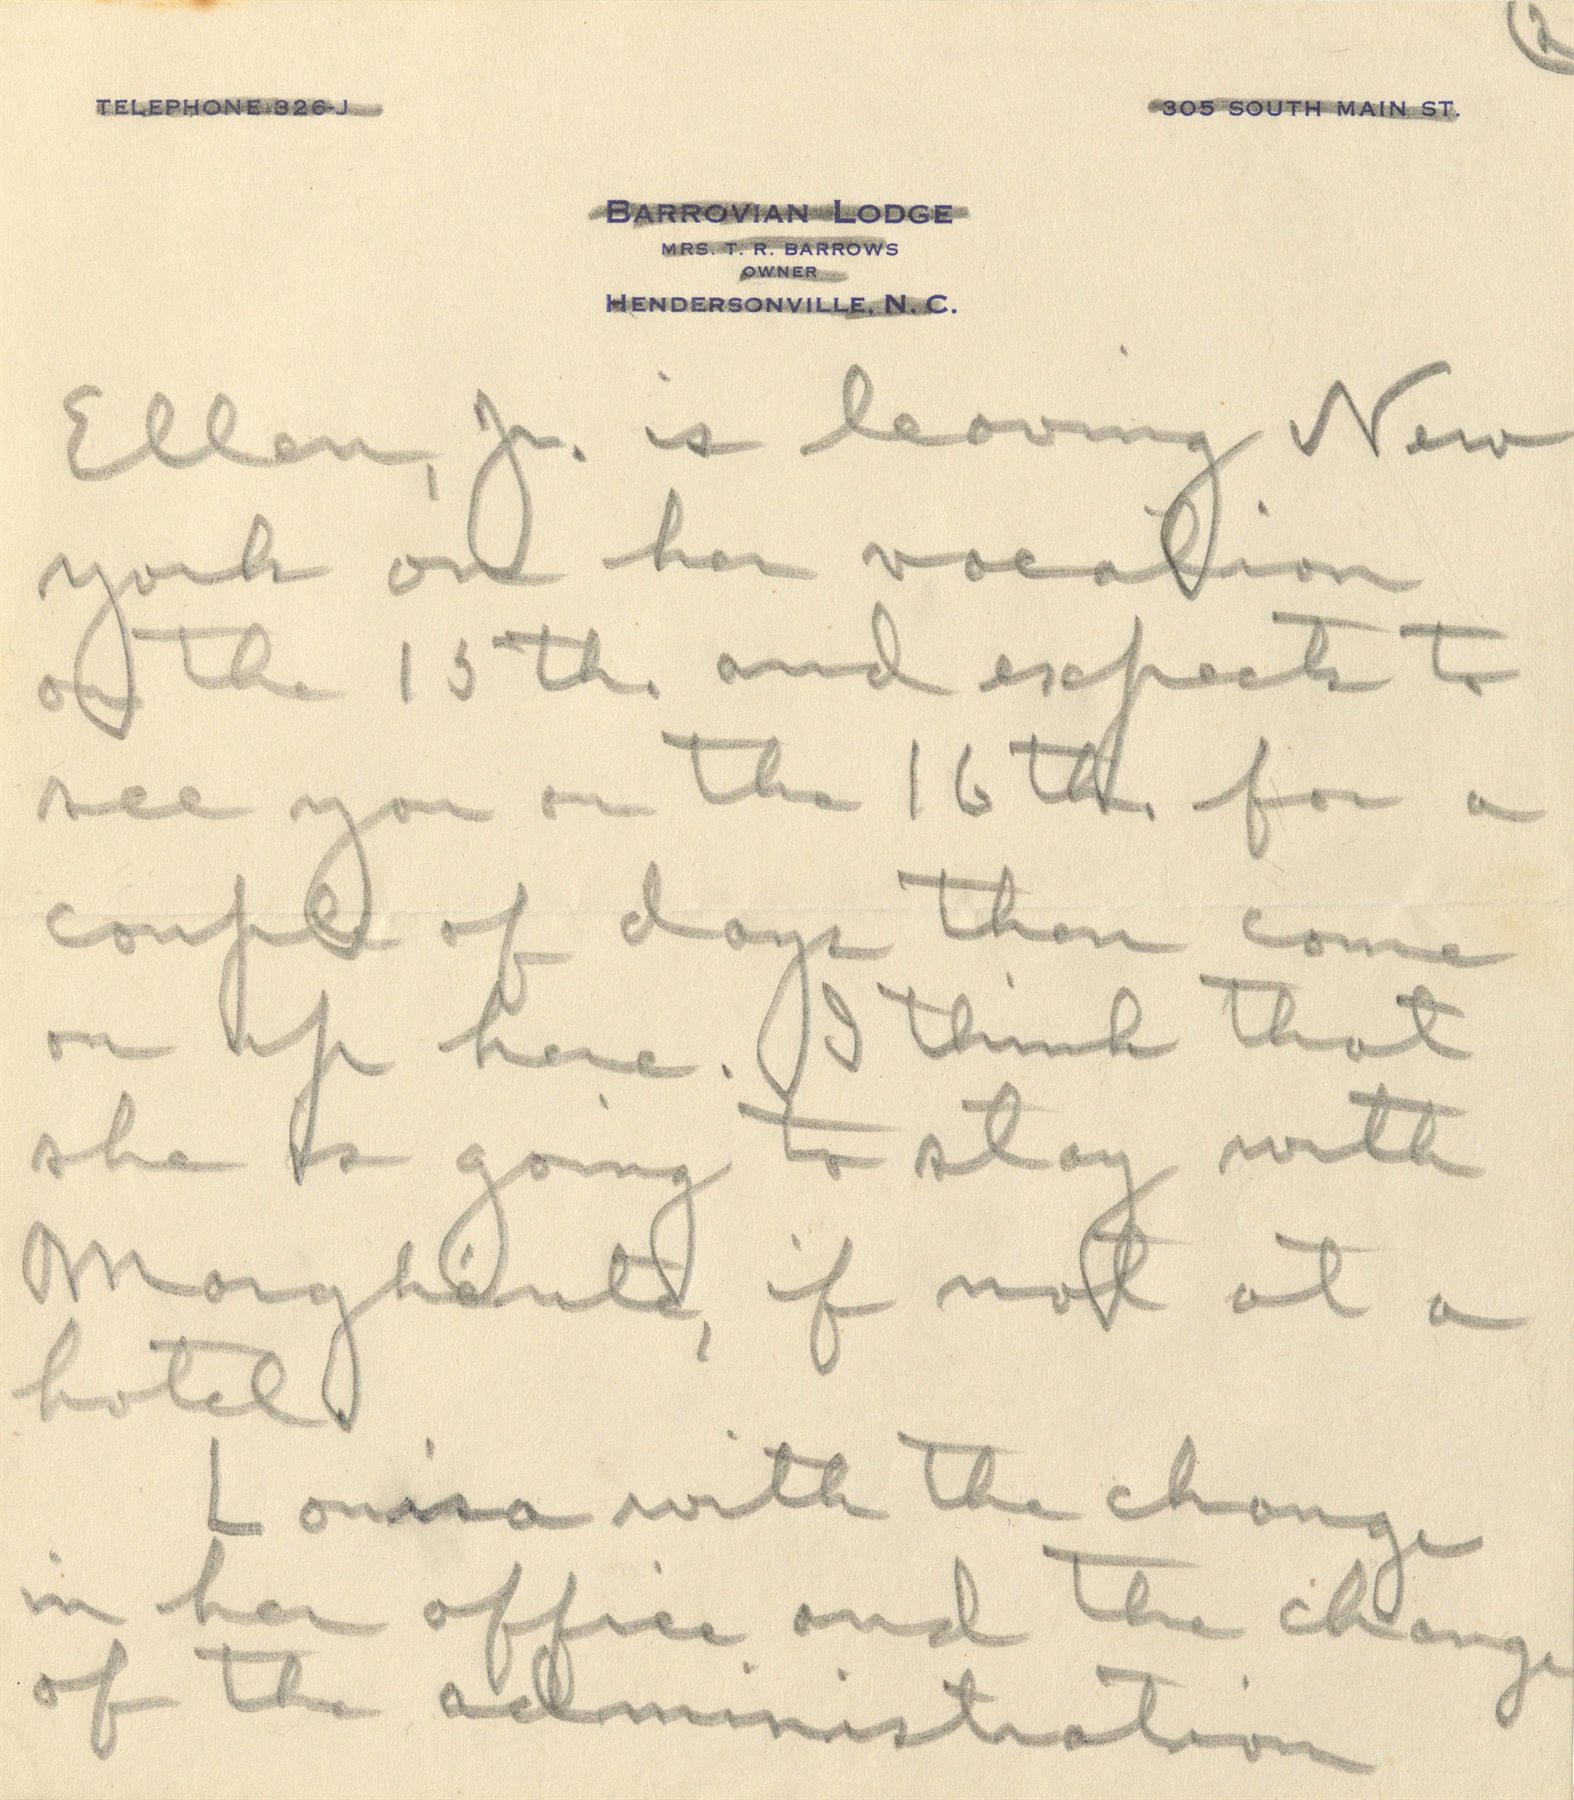 (2
TELEPHONE 326-J
305 SOUTH MAIN ST.
BARROVIAN LODGE
MRS. T. R. BARROWS
OWNER
HENDERSONVILLE, N. C.
Ellen, Jr. is leaving New
york on her vacation
on the 15th. and expects to
see you on the 16th. for a
couple of days then come
on up here. I think that
she is going to stay with
Margherite, if not at a
hotel.
Louisa with the change
in her office and the change
of the administration